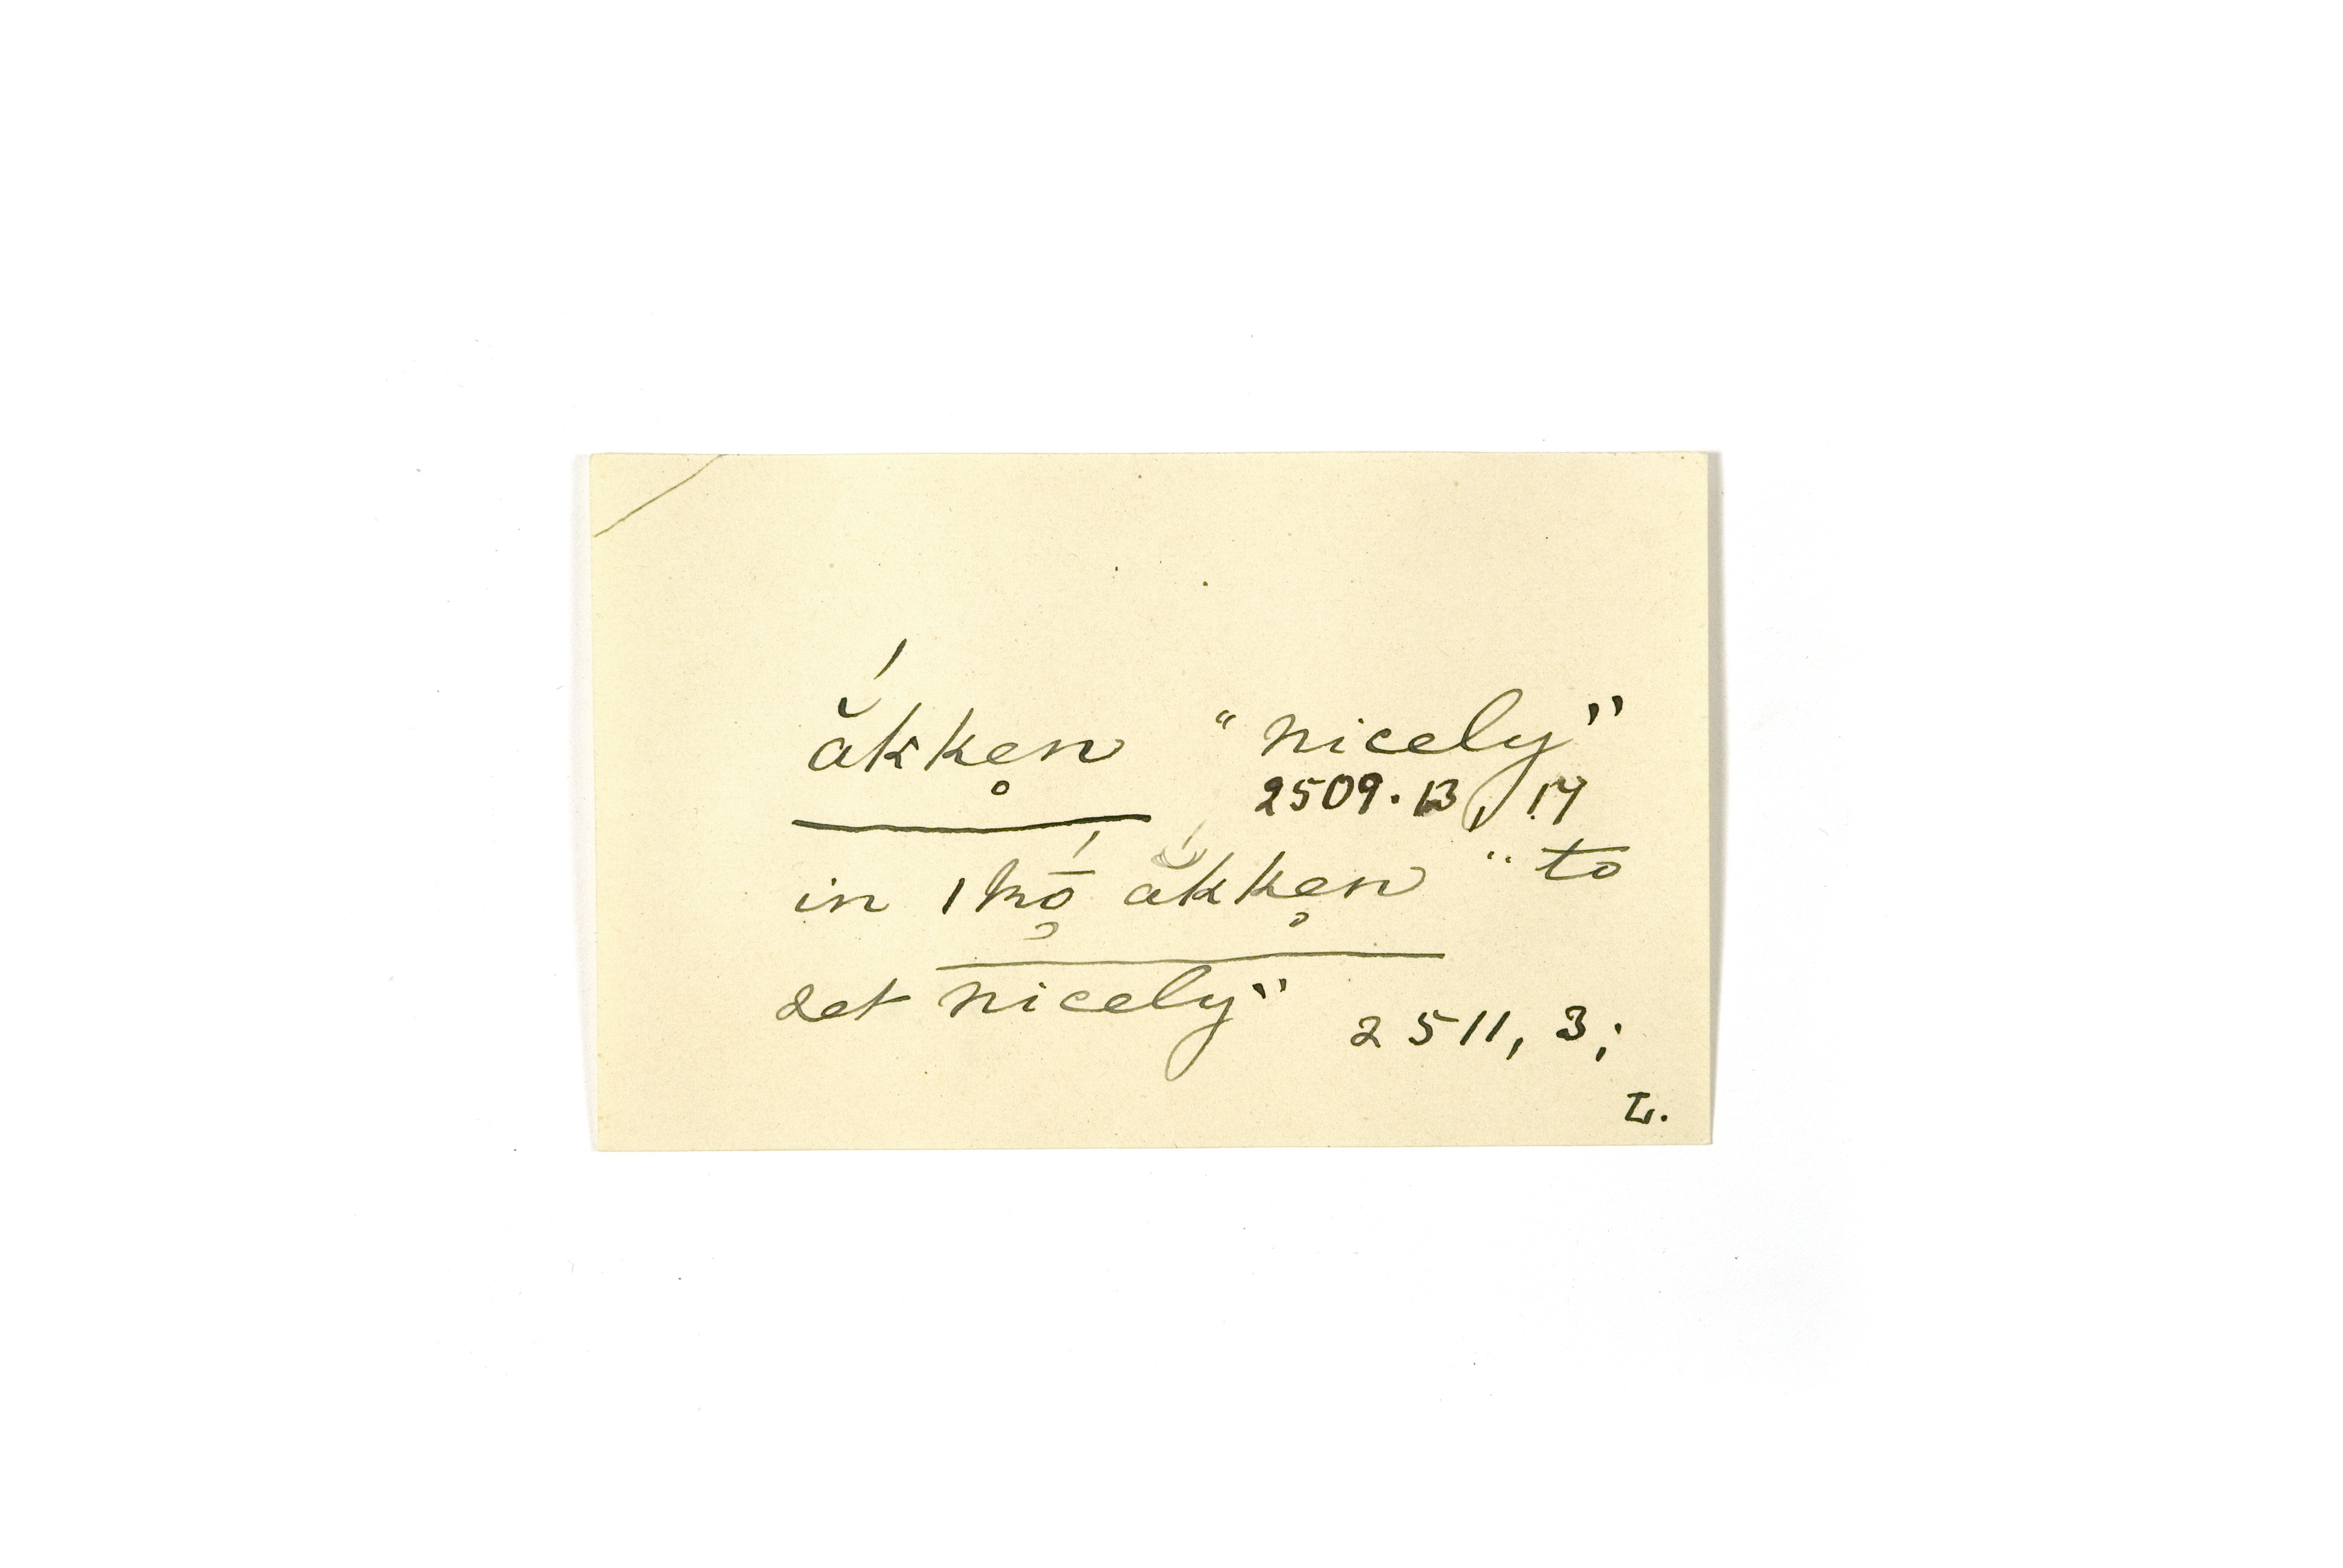 ắkke̥n "nicely"
2509.13, 14
in ı kṓ̥ ắkke̥n "to
set nicely" 2511, 3;
L.